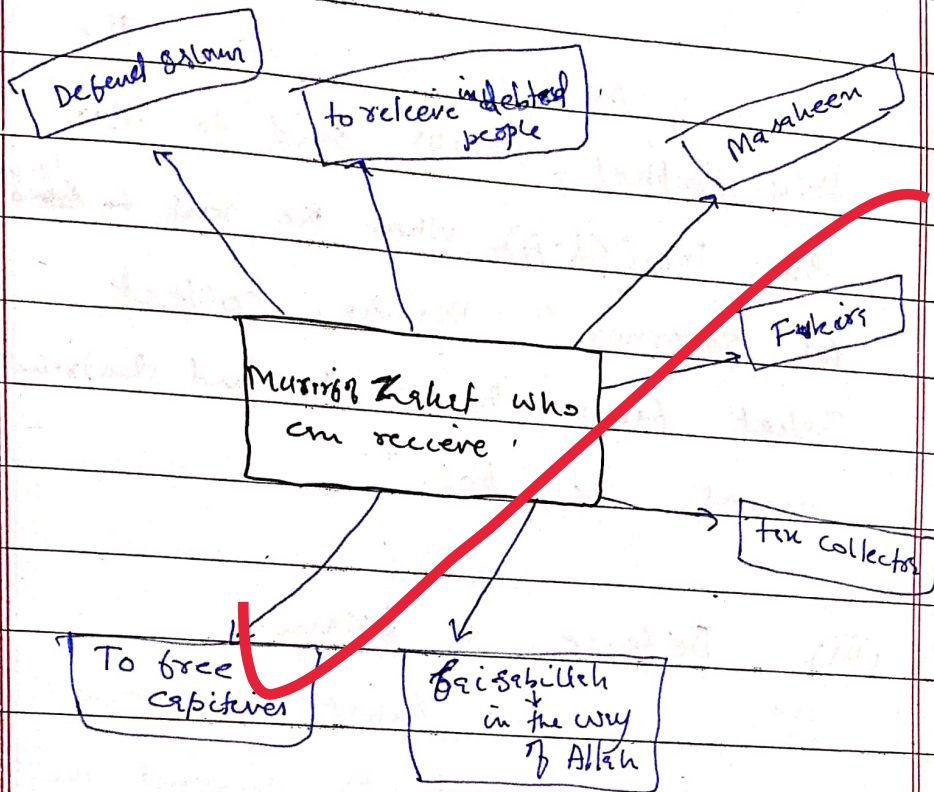 Defend Islam
to releeve indebted
people
Masakeen
Fukeirs
Musrif Zakat who
can recieve
tax collector
To free
capitives
fai sabillah
in the way
of Allah